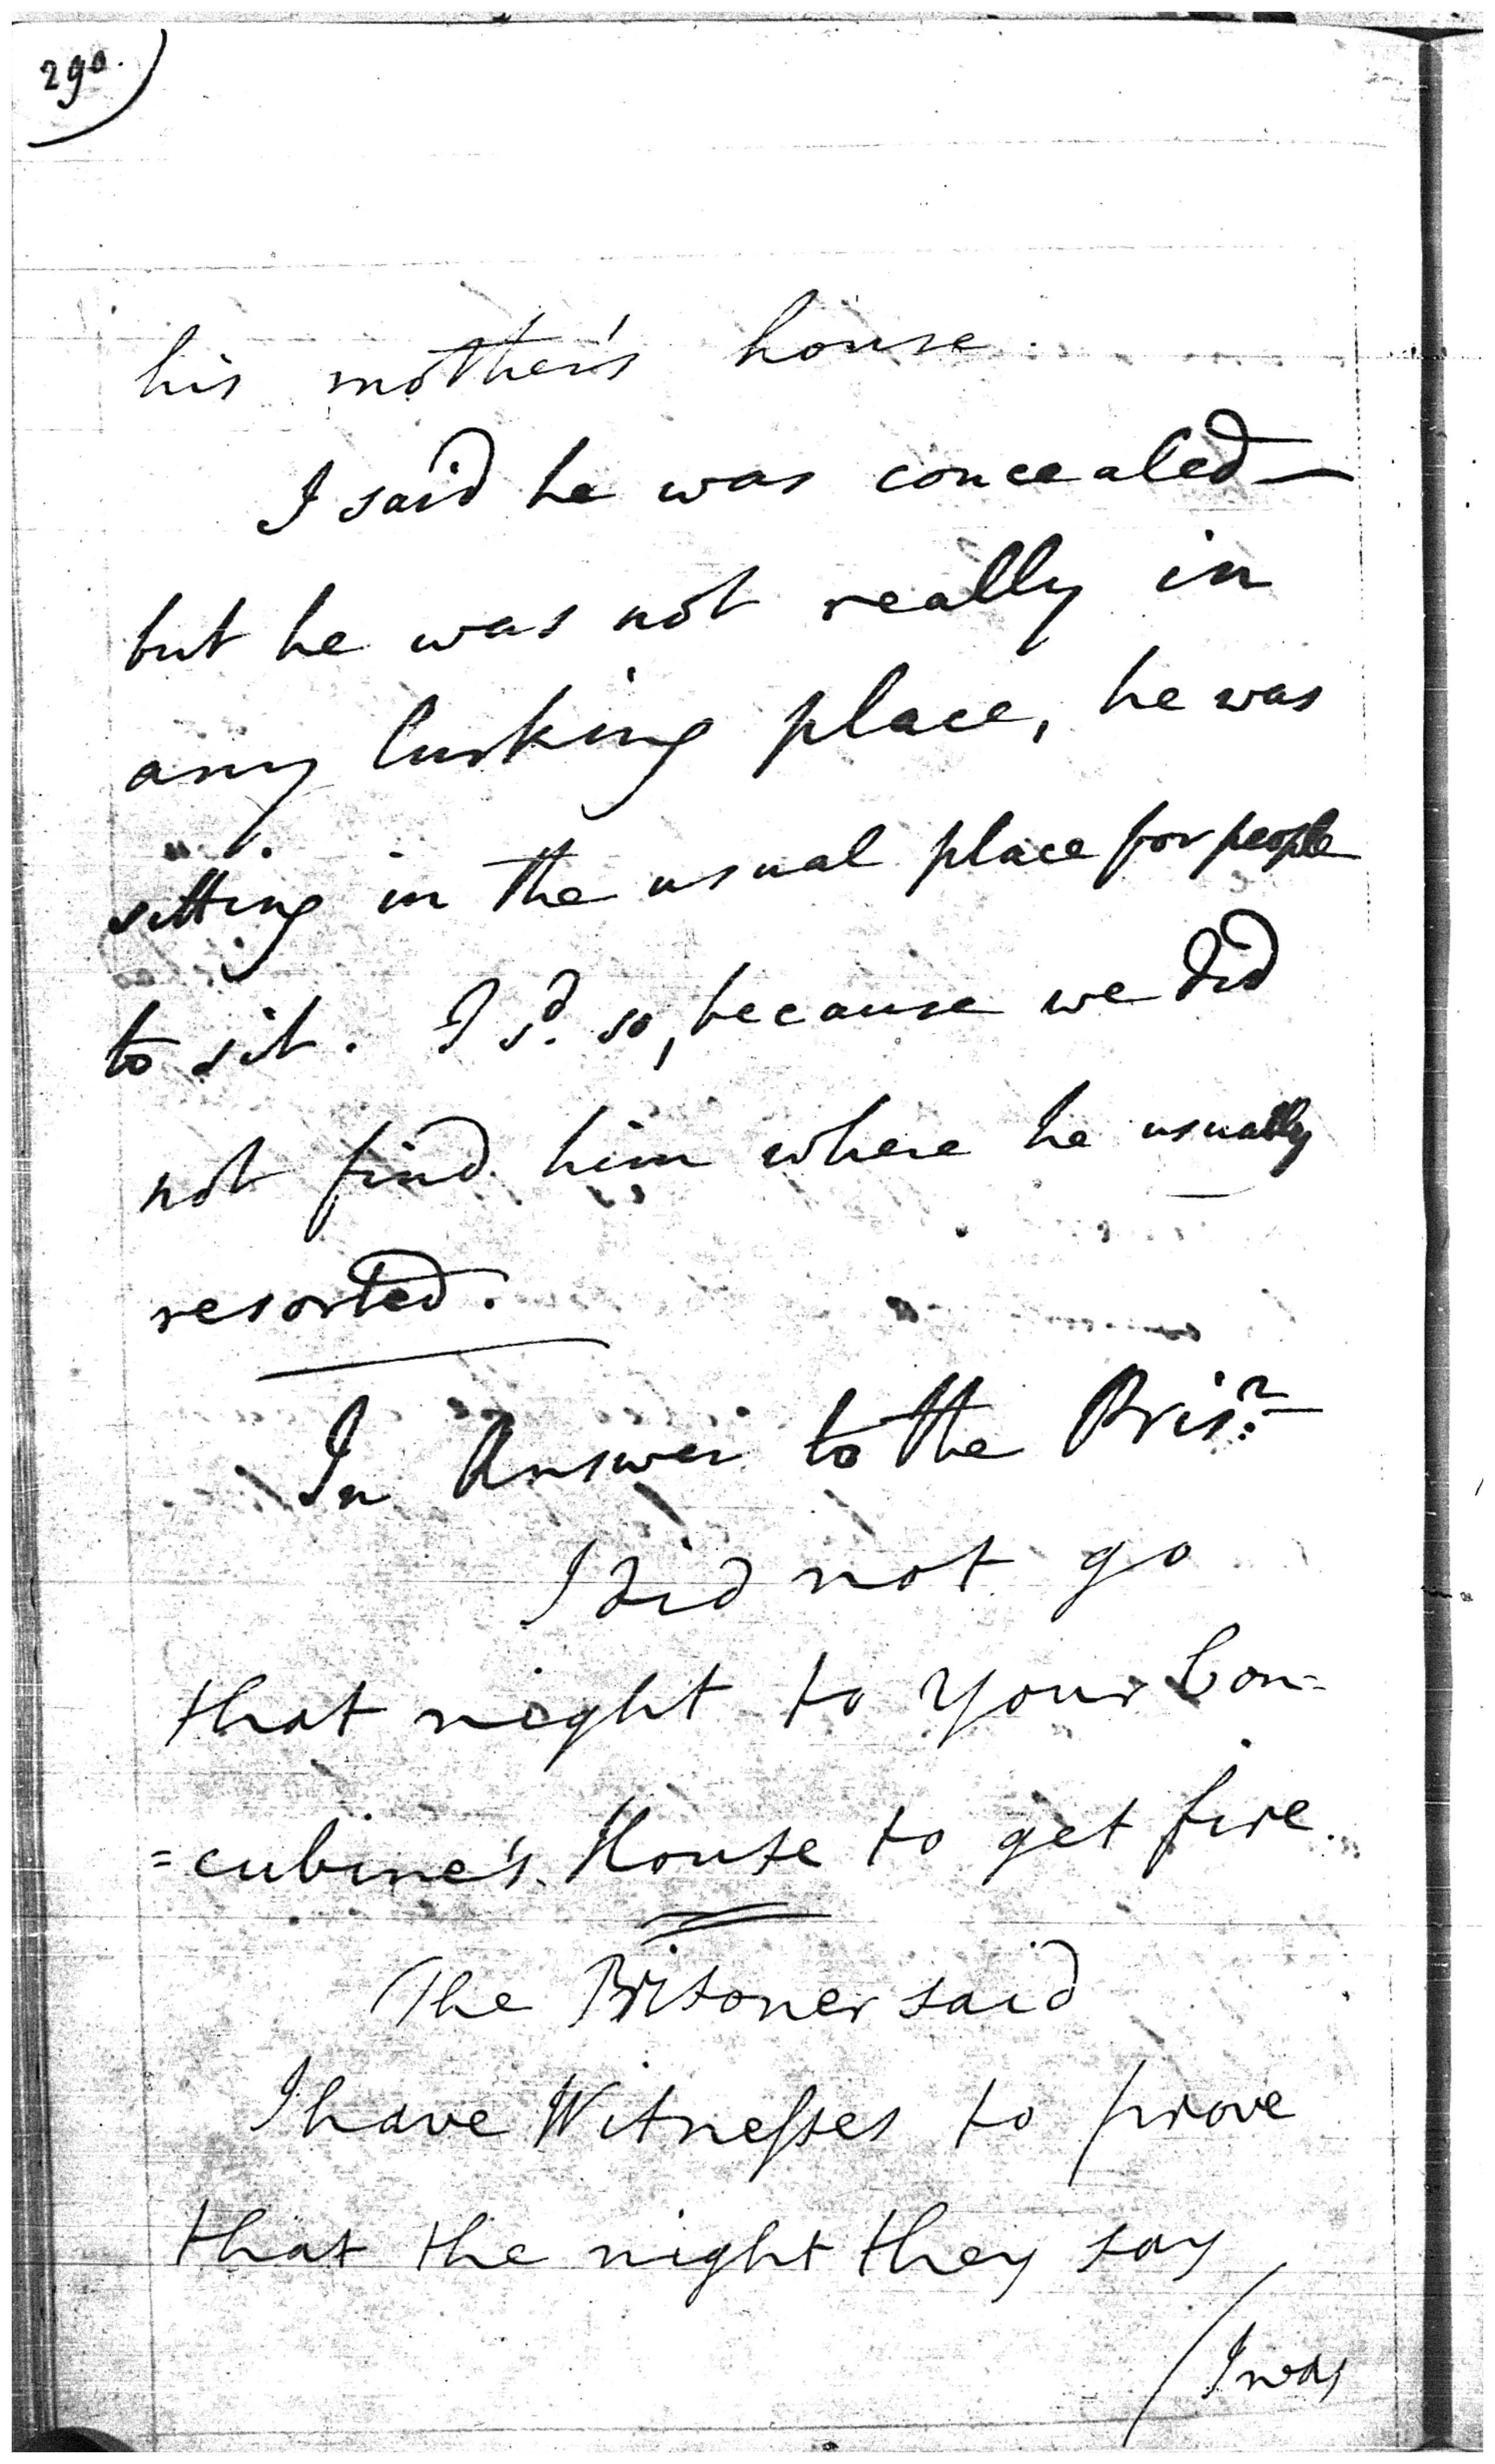 290.
his mother's house.
I said he was concealed—
but he was not really in
any lurking place, he was
sitting in the usual place for people
to sit. I sd. so, because we did
not find him where he usually
resorted.
In Answer to the Prisr.
I did not go
that night to your Con-
=cubine's House to get fire.
The Prisoner said
I have Witnesses to prove
that the night they say
/I was